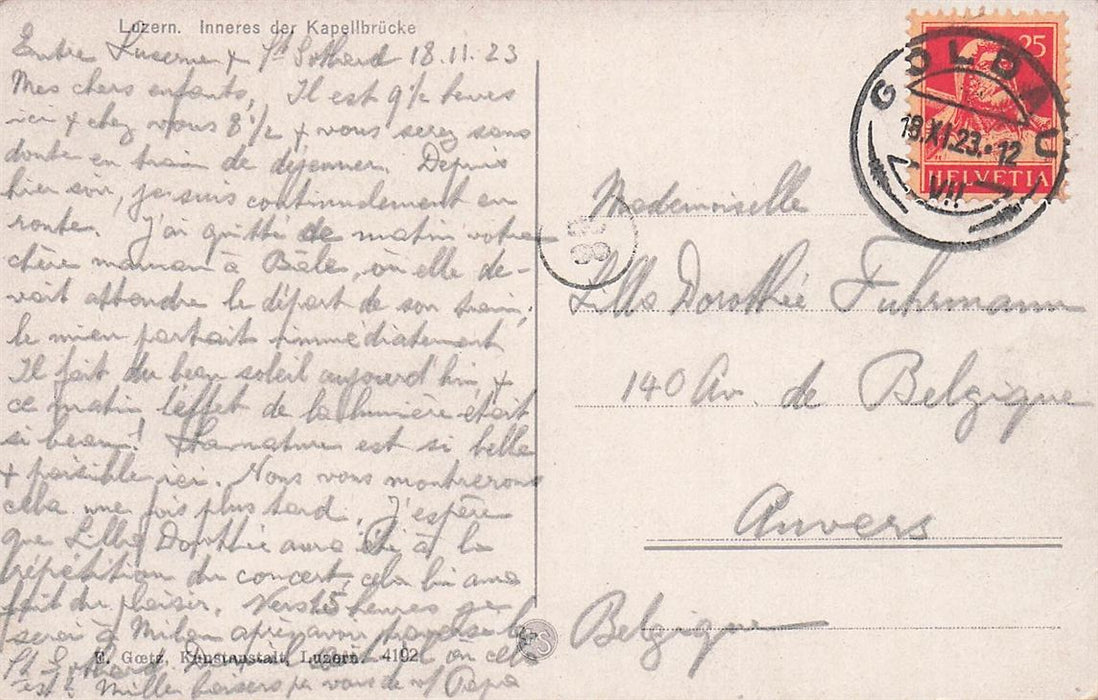 Luzern. Inneres der Kapellbrücke
Entre Lucerne & St Gothard 18.11.23
Mes chers enfants, Il est 9 1/2 heures
ici & chez vous 8 1/2 & vous serez sans
doute en train de déjeuner. Depuis
hier soir, je suis continuellement en
route. J'ai quitté ce matin votre
chère maman à Bâle, où elle de-
vait attendre le départ de son train,
le mien partait immédiatement
Il fait du beau soleil aujourd'hui, &
ce matin l'effet de la lumière était
si beau! La nature est si belle
& paisible ici. Nous vous montrerons
cela une fois plus tard. J'espère
que Lilla Dorothée aura été à la
répétition du concert, cela lui aura
fait du plaisir. Vers 15 heures je
serai à Milan après avoir traversé le
St Gothard
est! Milles baisers pr vous de v/ Papa
E. Goetz, Kunstanstalt, Luzern. 4192
GOLDAU
18.XI.23.-12
VII
25
HELVETIA
38
Mademoiselle
Lilla Dorothée Fuhrmann
140 Av. de Belgique
Anvers
Belgique